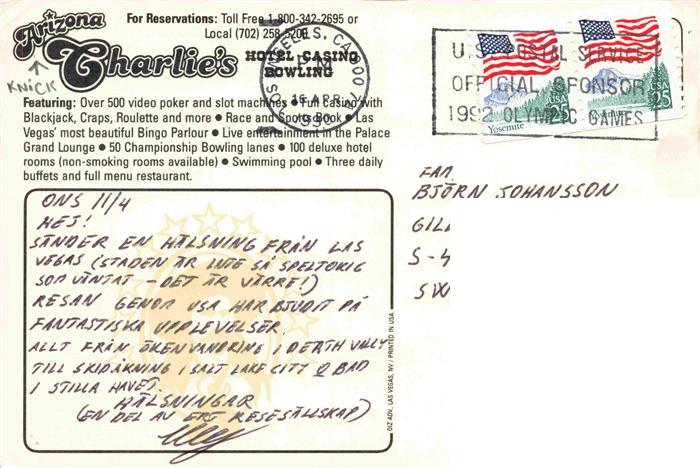 For Reservations: Toll Free 1-800-342-2695 or
Local (702) 258-5200
Arizona
Charlie's
HOTEL CASINO
BOWLING
KNICK
Featuring: Over 500 video poker and slot machines ● Full casino with
Blackjack, Craps, Roulette and more ● Race and Sports Book ● Las
Vegas' most beautiful Bingo Parlour ● Live entertainment in the Palace
Grand Lounge ● 50 Championship Bowling lanes ● 100 deluxe hotel
rooms (non-smoking rooms available) ● Swimming pool ● Three daily
buffets and full menu restaurant.
LOS ANGELES, CA 900
PM
16 APR
1990
U.S. POSTAL SERVICE
OFFICIAL SPONSOR
1992 OLYMPIC GAMES
Yosemite
USA
25
ONS 11/4
HEJ!
SÄNDER EN HÄLSNING FRÅN LAS
VEGAS (STADEN ÄR INTE SÅ SPELTOKIG
SOM VÄNTAT – DET ÄR VÄRRE!)
RESAN GENOM USA HAR BJUDIT PÅ
FANTASTISKA UPPLEVELSER.
ALLT FRÅN ÖKENVANDRING I DEATH VALLY
TILL SKIDÅKNING I SALT LAKE CITY & BAD
I STILLA HAVET.
HÄLSNINGAR
(EN DEL AV ERT RESESÄLLSKAP)
DIZ ADV, LAS VEGAS, NV / PRINTED IN USA
FAM
BJÖRN JOHANSSON
GIL
S-4
SW